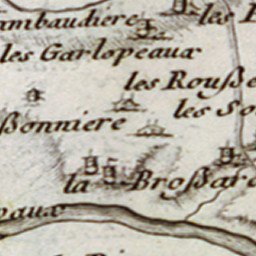 ambaudiere
les
les Garlopeaux
les Rouße
les So
ßonniere
la Broßar
eaux